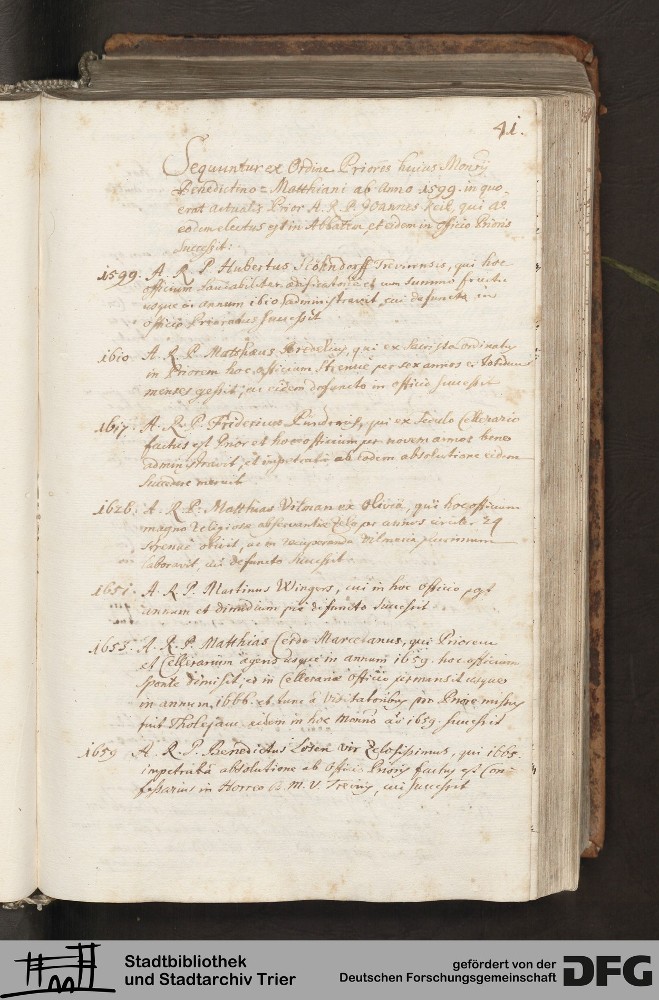 41.
Sequuntur ex Ordine Priores huius Monrÿ
Benedictino = Matthiani ab Anno 1599 in quo
erat actualis Prior A. R. P. Joannes Keil, qui Aº
eodem electus est in Abbatem, et eidem in officio Prioris
Successit:
1599. A. R. P. Hubertus Trevirensis, qui hoc
officium laudabiliter, ædificatorie et cum summo fructu
usque ad annum 1610 administravit, cui defuncto in
officio Prioratus Successit
1610. A. R. P. Matthæus Bredelius, qui ex Sacrista ordinatus
in Priorem hoc officium strenue per sex annos et totidem
menses gessit, cui eidem defuncto in officio successit
1617. A. R. P. Fridericus, qui ex Cellerario
factus est Prior et hocce officium per novem annos bene
administravit, et impetrata ab eodem absolutione eidem
Succedere meruit
1626. A. R. P. Matthias Vilman ex Olivia, qui hoc officium
magno religiosæ observantiæ Zelo per annos circiter 24
strenue obivit, ac in recuperanda Vilmaria plurimum
laboravit, cui defuncto Successit
1651. A. R. P. Martinus Wingers, cui in hoc officio post
annum et dimidium pie defuncto Successit
1653. A. R. P. Matthias Cerdo Marcetanus, qui Priorem
et Cellerarium agens usque in annum 1659. hoc officium
sponte dimisit, et in Cellerariæ officio permansit usque
in annum 1666. et tunc à Visitatoribus pro Priore missus
fuit Tholejam, eidem in hoc Monrio aº 1659. successit
1659 A. R. P. Benedictus Loser vir Zelosissimus, qui 1665.
impetratâ absolutione ab officio Prioris factus est Con-
fessarius in Horreo B. M. V. Treviris, cui successit
Stadtbibliothek
und Stadtarchiv Trier
gefördert von der
Deutschen Forschungsgemeinschaft
DFG